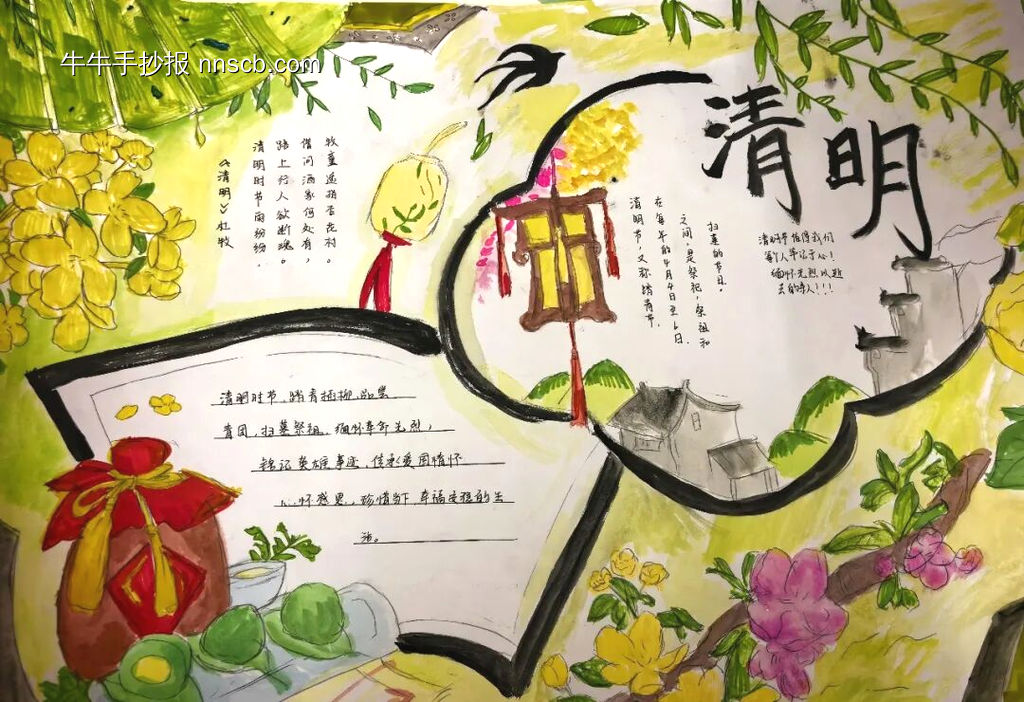 牛牛手抄报 nnscb.com
清明
《清明》杜牧
清明时节雨纷纷，
路上行人欲断魂。
借问酒家何处有，
牧童遥指杏花村。
清明节，又称踏青节，
在每年的4月4日至6日
之间，是祭祀，祭祖和
扫墓的节日。
清明节值得我们
每个人牢记于心！
缅怀先烈以逝
去的亲人！！！
清明时节，踏青插柳，品尝
青团，扫墓祭祖，缅怀革命先烈，
铭记英雄事迹，传承爱国情怀
心怀感恩，珍惜当下，幸福安稳的生
活。